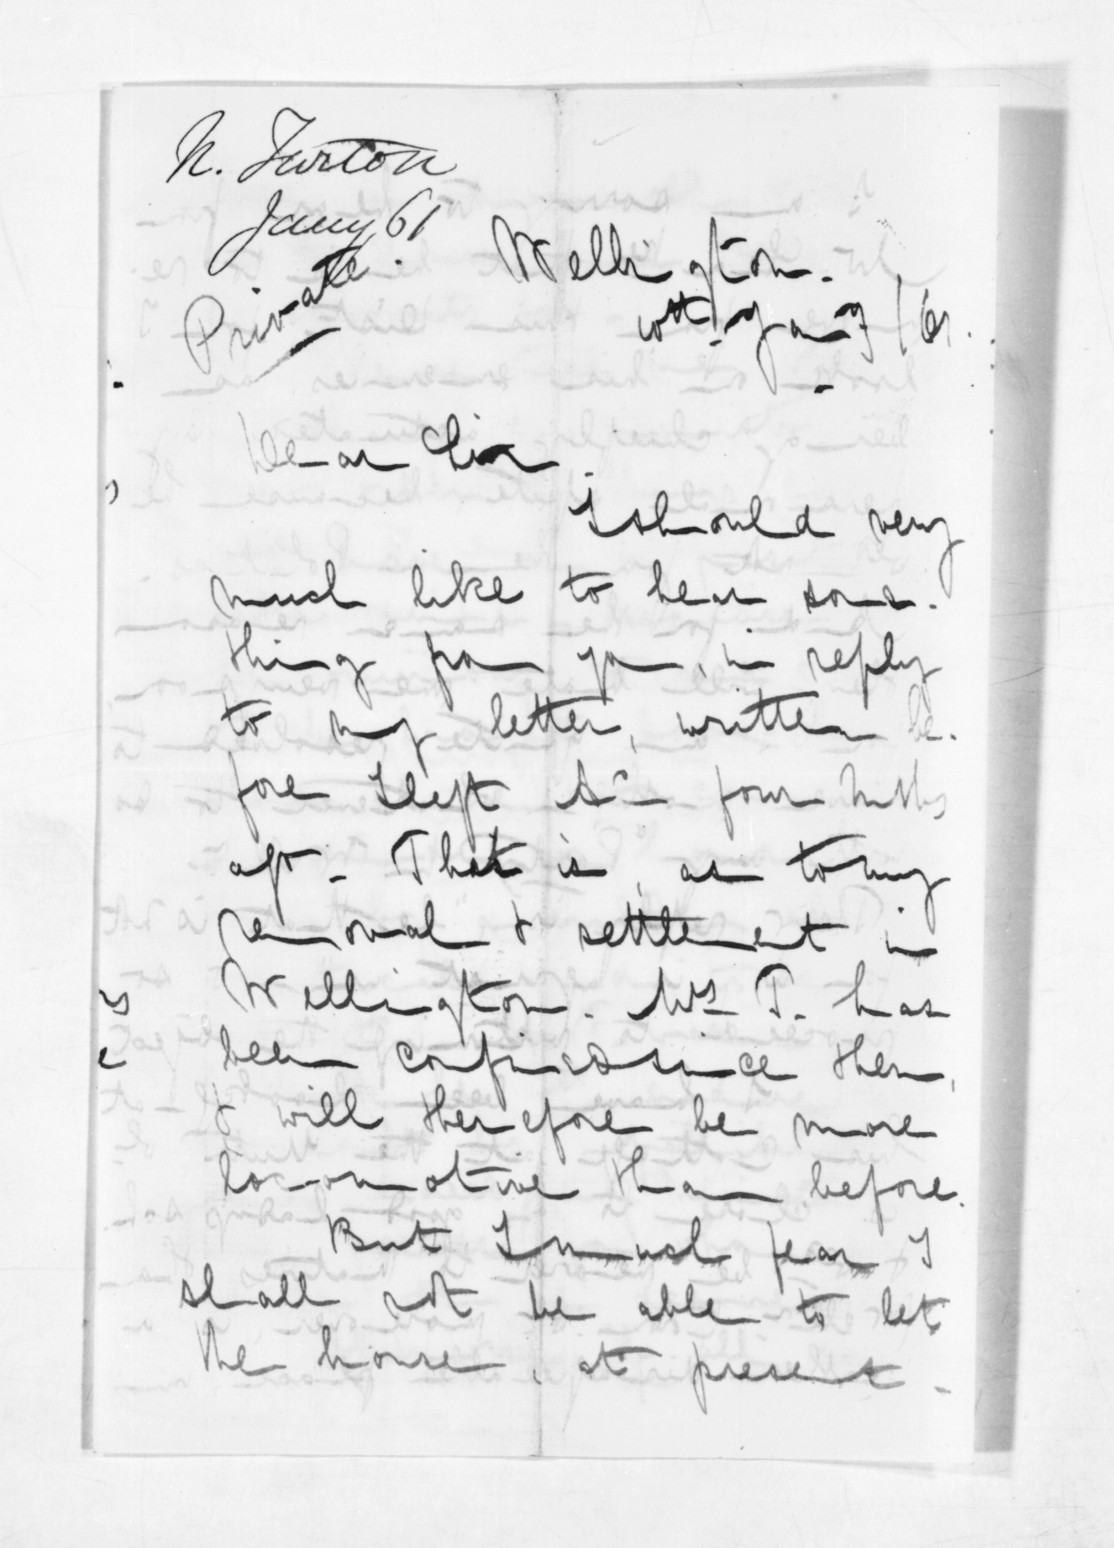 H. Turton
Jany 61
Private.
Wellington.
10th Jany /61.
Dear Sir.
I should very
much like to hear some-
thing from you, in reply
to my letter, written be-
fore I left Ad four mths
ago. That is, as to my
removal & settlement in
Wellington. Mrs T. has
been confined since then,
& will therefore be more
locomotive than before.
But I much fear I
shall not be able to let
the house, at present.